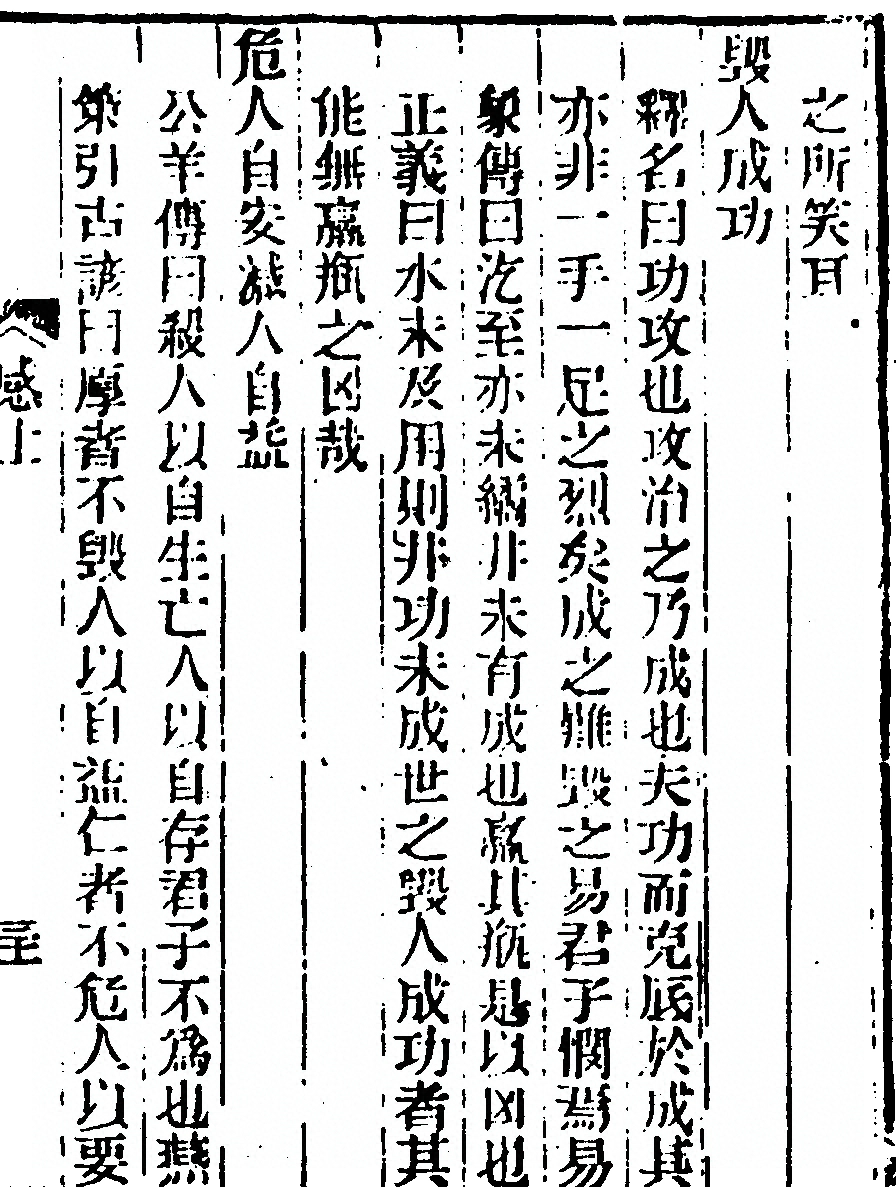 之所笑耳
毀人成功
釋名曰功攻也攻治之乃成也夫功而克底於成其
亦非一手一足之烈矣成之難毀之易君子憫焉易
彖傳曰汔至亦未繘井未有成也羸其瓶是以凶也
正義曰水未及用則井功未成世之毀人成功者其
能無羸瓶之凶哉
危人自安減人自益
公羊傳曰殺人以自生亡人以自存君子不爲也燕
策引古諺曰厚者不毀人以自益仁者不危人以要
感上